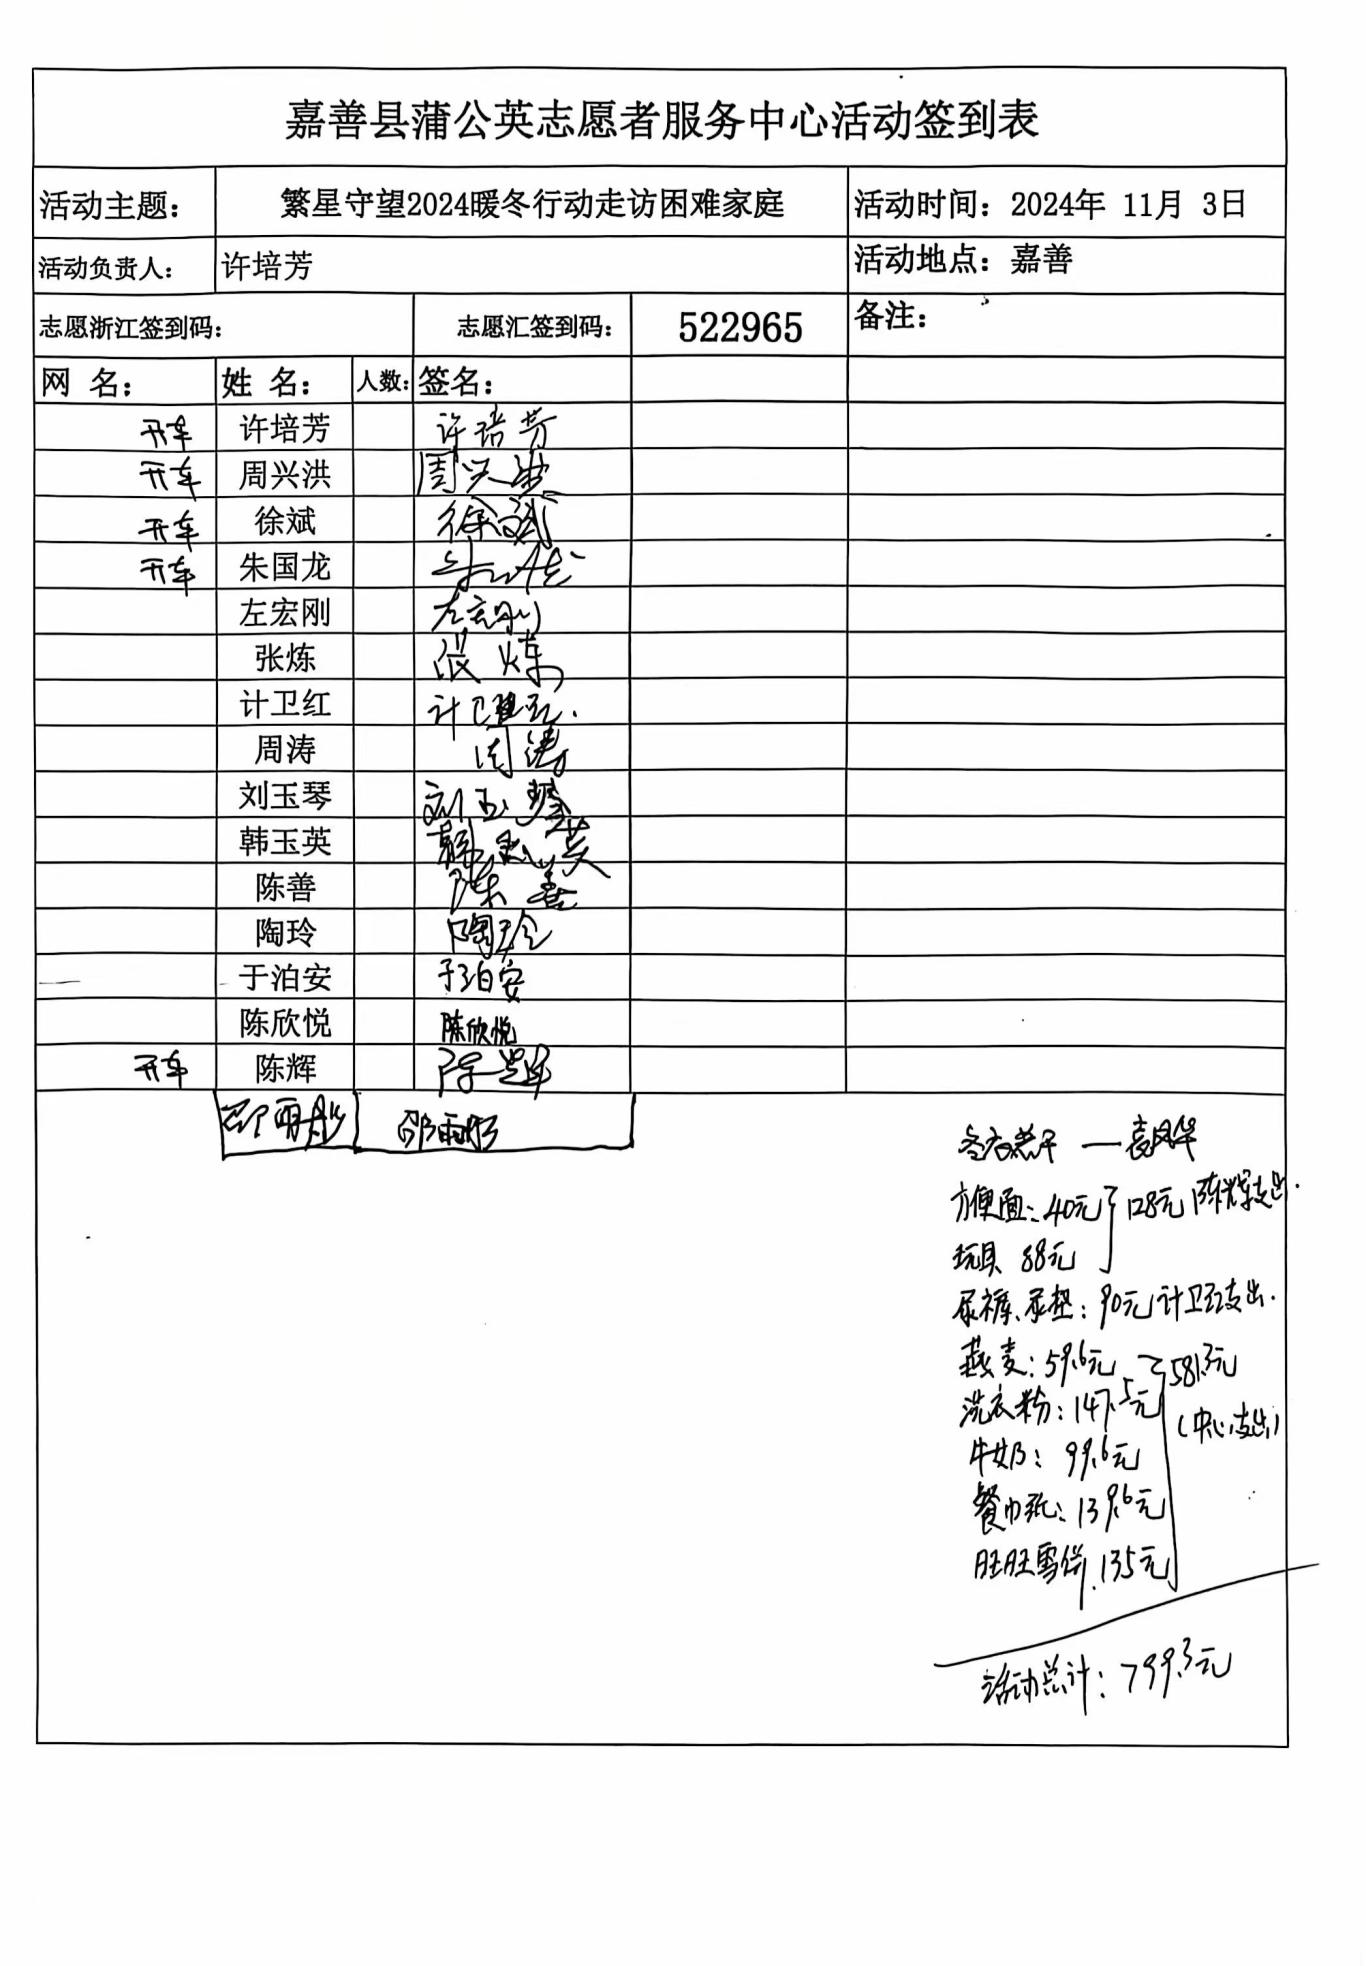 嘉善县蒲公英志愿者服务中心活动签到表
活动主题： 繁星守望2024暖冬行动走访困难家庭 活动时间：2024年 11月 3日
活动负责人： 许培芳 活动地点：嘉善
志愿浙江签到码： 志愿汇签到码： 522965 备注：
网 名： 姓 名： 人数： 签名：
开车 许培芳 许培芳
开车 周兴洪 周兴洪
开车 徐斌 徐斌
开车 朱国龙 朱国龙
左宏刚 左宏刚
张炼 张炼
计卫红 计卫红
周涛 周涛
刘玉琴 刘玉琴
韩玉英 韩玉英
陈善 陈善
陶玲 陶玲
于泊安 于泊安
陈欣悦 陈欣悦
开车 陈辉 陈辉
邵雨 邵雨
冬衣若干 — 袁凤华
方便面：40元 128元 陈辉支出.
玩具 88元
尿裤、尿垫：90元 计卫红支出.
燕麦：59.6元 581.3元
洗衣粉：147.5元 （中心支出）
牛奶：99.6元
餐巾纸：139.6元
旺旺雪饼.135元
活动总计：799.3元